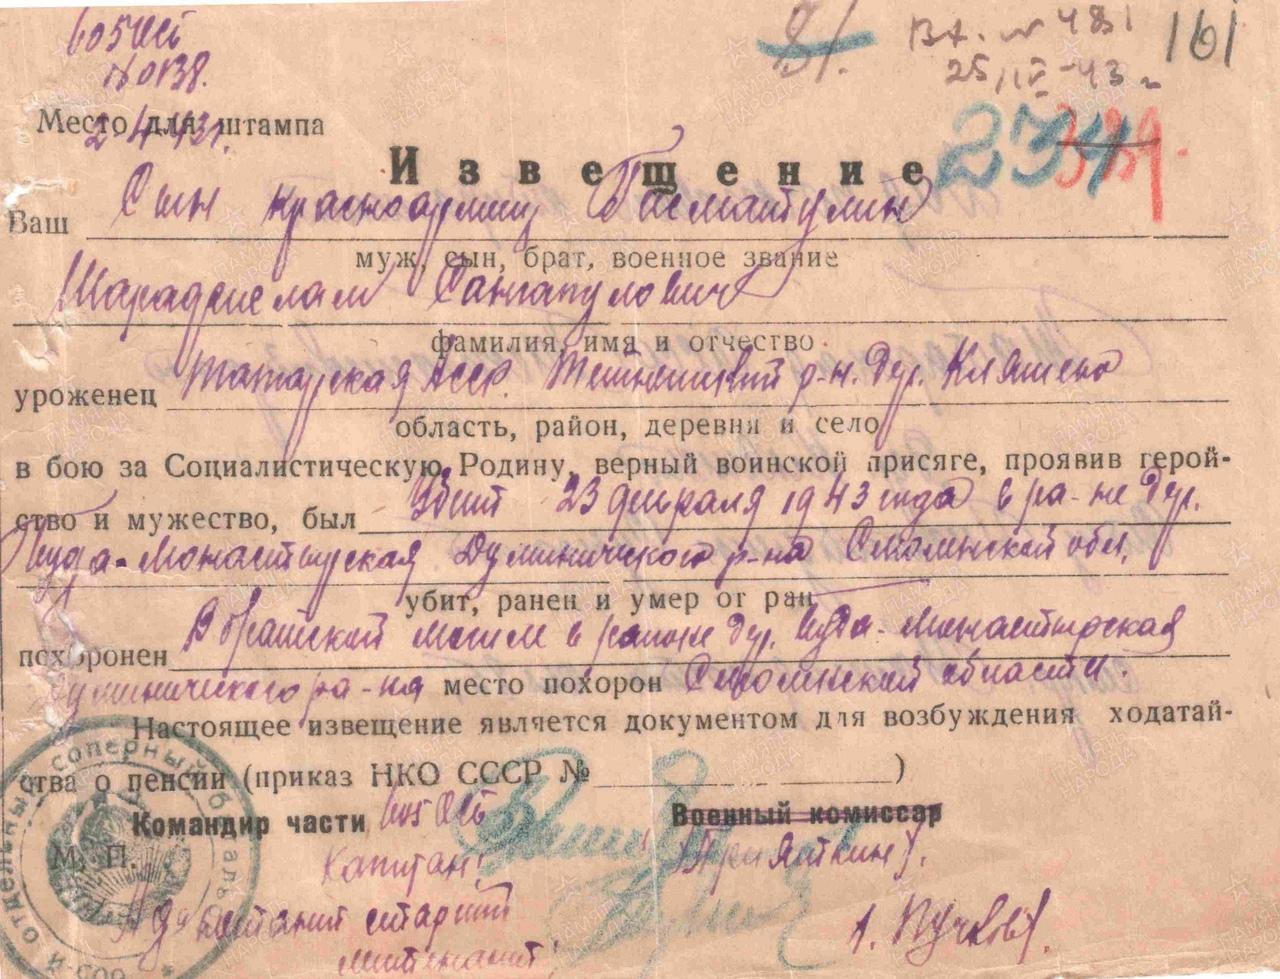 605 ОСБ
№ 0138.
2.4.43г.
81.
Вх. № 481
25/IV-43 г
161
Место для штампа
234
339.
Извещение
Ваш Сын красноармеец
муж, сын, брат, военное звание
фамилия, имя и отчество
уроженец Татарская АССР. р-н. дер. Кляшево
область, район, деревня и село
в бою за Социалистическую Родину, верный воинской присяге, проявив герой-
ство и мужество, был Убит 23 февраля 1943 года в ра-не дер.
Гуда-Монастырская Думиничского р-на Смоленской обл.
убит, ранен и умер от ран
похоронен В братской могиле в районе дер. Гуда-Монастырская
Думиничского ра-на место похорон Смоленской области.
Настоящее извещение является документом для возбуждения ходатай-
ства о пенсии (приказ НКО СССР № )
Командир части 605 ОСБ Военный комиссар
М. П. Капитан:
Адъютант старший
лейтенант: Пучков).
й отдельный саперный баталь
605